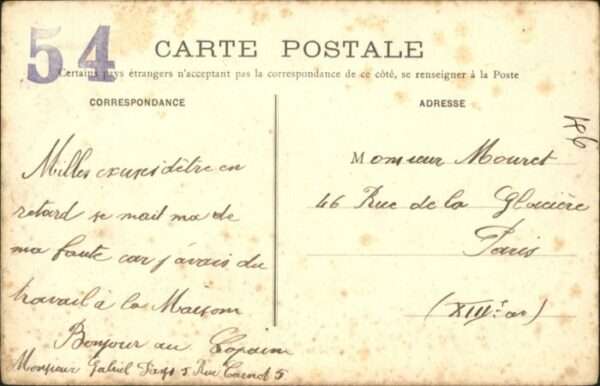 54
CARTE POSTALE
Certains pays étrangers n'acceptant pas la correspondance de ce côté, se renseigner à la Poste
CORRESPONDANCE
ADRESSE
186
Milles excuses d'être en
retard se mait ma de
ma faute car j'avais du
travail à la Maison
Bonjour au Copain
Monsieur Gabriel 5 Rue Carnot 5
Monsieur Mouret
46 Rue de la Glacière
Paris
(XIIIe ar)